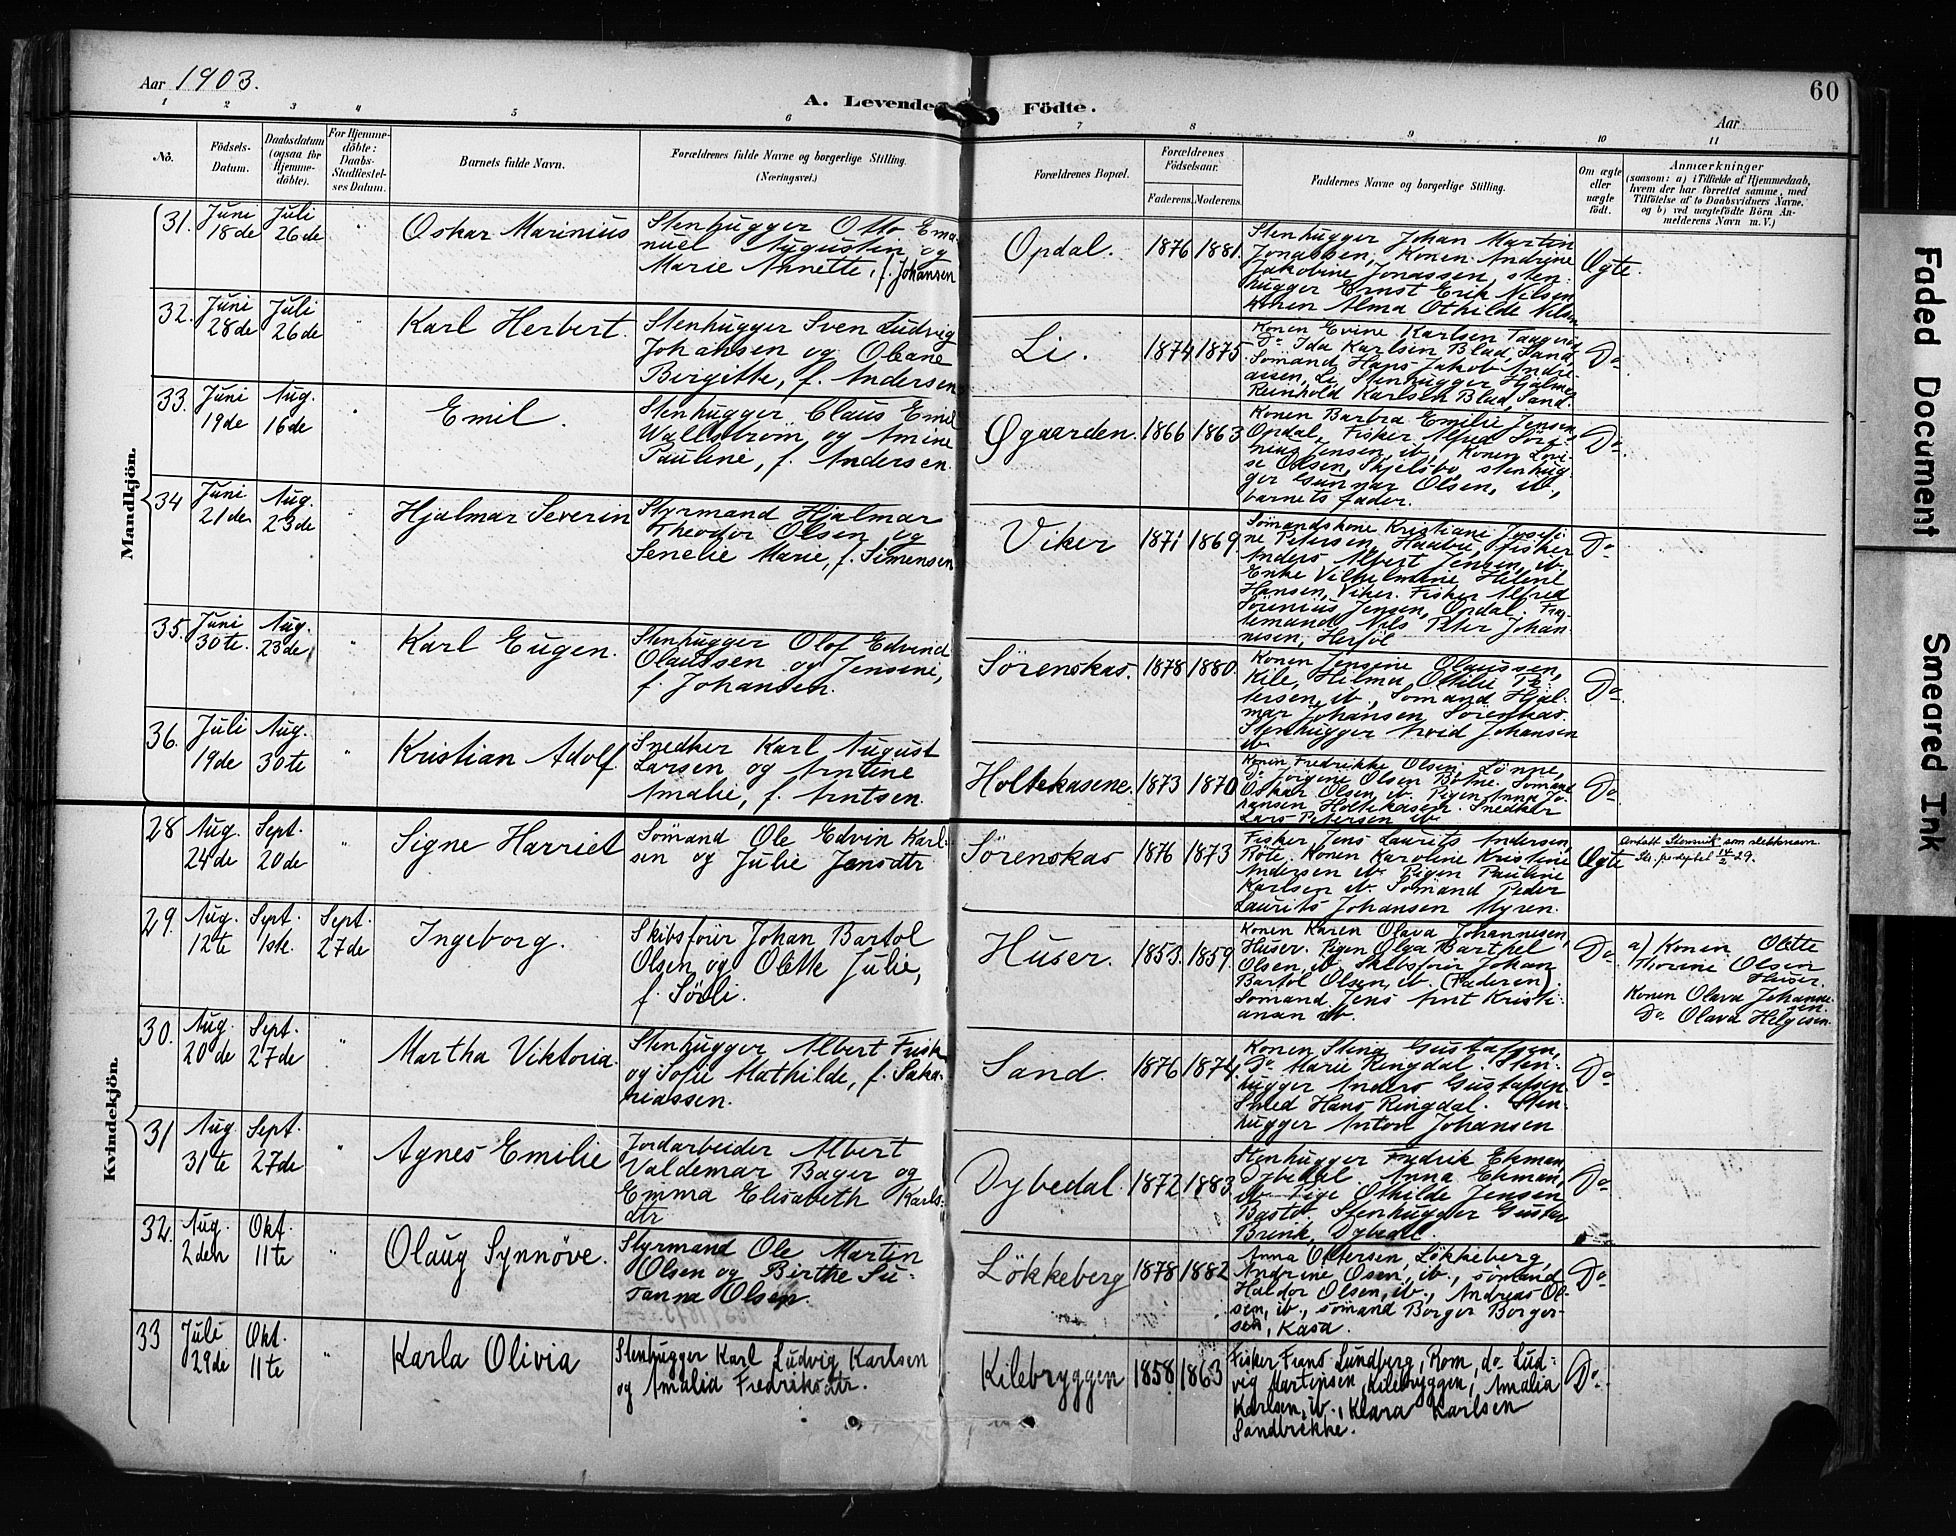 Aar 1903.
A. Levende Födte.
60
Aar
1 2 3 4 5 6 7 8 9 10 11
No.
Födsels-Datum.
Daabsdatum (ogsaa for Hjemme-döbte).
For Hjemme-döbte: Daabs-Stadfæstel-ses Datum.
Barnets fulde Navn.
Forældrenes fulde Navne og borgerlige Stilling. (Næringsvei.)
Forældrenes Bopæl.
Forældrenes Födselsaar.
Faderens. Moderens.
Faddernes Navne og borgerlige Stilling.
Om ægte eller uægte födt.
Anmærkninger
(saasom: a) i Tilfælde af Hjemmedaab,
hvem der har forrettet samme, med
Tilföielse af to Daabsvidners Navne.
og b) ved uægtefödte Börn An-
melderens Navn m. V.)
Mandkjön.
31. Juni 18de Juli 26de " Oskar Marinius
Stenhugger Otto Ema-
nuel Augustin og
Marie Annette, f. Johansen
Opdal. 1876 1881.
Stenhugger Johan Martin
Jonassen, Konen Andrine
Jakobine Jonassen, sten-
hugger Ernst Erik Nilsen
konen Alma Othilde Nilsen
Ægte.
32. Juni 28de Juli 26de " Karl Herbert.
Stenhugger Sven Ludvig
Johansen og Oleane
Birgitte, f. Andersen
Li. 1874 1875.
Konen Evine Karlsen
Do Ida Karlsen Blad, Sand,
Sömand Hans Jakob Andre-
asen, Li, Stenhugger Hjalmar
Reinhold Karlsen Blad, Sand.
Do
33. Juni 19de Aug. 16de " Emil.
Stenhugger Claus Emil
Wallström og Amine
Pauline, f. Andersen.
Øgaarden. 1866 1863
Konen Barbra Emilie Jensen,
Opdal, Fisker Alfred Söre-
nius Jensen, ib., Konen Lovi-
se Olsen, Skjelsbo, stenhug-
ger Gunnar Olsen, ib.,
barnets fader.
Do
34 Juni 21de Aug. 23de " Hjalmar Severin
Styrmand Hjalmar
Theodor Olsen og
Senelie Marie, f. Simensen
Viker 1871 1869
Sömandskone Kristiane Josefi-
ne Petersen, Haabu, fisker
Anders Albert Jensen, ib.
Enke Vilhelmine Helene
Hansen, Viker. Fisker Alfred
Sörenius Jensen, Opdal.
Nils Peter Johan-
nesen, Herföl
Do
35. Juni 30te. Aug. 23de " Karl Eugen.
Stenhugger Olof Edvind
Olaussen og Jensine,
f. Johansen.
Sörenskas. 1878 1880.
Konen Jensine Olaussen,
Kile, Hilma Othilie Pe-
tersen, ib., Sömand Hjal-
mar Johansen Sörenskas.
Stenhugger Arvid Johansen
ib.
Do
36. Juli 19de Aug. 30te " Kristian Adolf
Snedker Karl August
Larsen og Antine
Amalie, f. Arntsen.
Holtekasene. 1873 1870
Konen Fredrikke Olsen Lönne,
Do Jörgine Olsen Botne. Sömand
Oskar Olsen, ib. Pigen Anna Jo-
hansen Holtekasen. Snedker
Lars Petersen ib.
Do
Kvindekjön.
28 Aug. 24de Sept. 20de " Signe Harriet
Sömand Ole Edvin Karl-
sen og Julie Jensdtr
Sörenskas 1876 1873
Fisker Jens Laurits Andersen,
Röte. Konen Karoline Kristine
Andersen ib. Pigen Pauline
Karlsen ib. Sömand Peder
Laurits Johansen Myren.
Ægte
Antatt Stensvik som slektsnavn.
29. Aug. 12te Sept. 1ste. Sept. 27de Ingeborg.
Skibsförer Johan Bartol
Olsen og Olette Julie,
f. Sörli.
Huser. 1853. 1859.
Konen Karen Olava Johannesen,
Huser. Pigen Olga Barthel
Olsen, ib. Skibsförer Johan
Bartol Olsen, ib. (Faderen).
Sömand Jens Arnt Kristi-
ansen ib.
Do
a) Konen Olette
Thorine Olsen
Huser.
Konen Olava Johanne-
sen.
Do Olava Helgesen
30. Aug. 20de Sept. 27de " Martha Viktoria.
Stenhugger Albert Frisk
og Sofie Mathilde, f. Saka-
riassen.
Sand. 1876 1874.
Konen Stina Gustafsen,
Do Marie Ringdal. Sten-
hugger Anders Gustafsen
Smed Hans Ringdal. Sten-
hugger Anton Johansen
Do
31 Aug. 31te Sept. 27de " Agnes Emilie
Jordarbeider Albert
Valdemar Bager og
Emma Elisabeth Karls-
dtr
Dybedal. 1872 1883
Stenhugger Fredrik Ekman,
Dybedal. Anna Ekman,
ib. Pige Othilde Jensen
Bastö. Stenhugger Gustav
Brink, Dybedal.
Do
32. Aug. 2den Okt. 11te " Olaug Synnöve.
Styrmand Ole Martin
Olsen og Birthe Su-
sanna Olsen.
Lökkeberg 1878 1882
Anna Oltersen, Lökkeberg,
Andrine Osen, ib., sömand
Haldor Olsen, ib., Andreas Ol-
sen, ib., sömand Borger Borger-
sen, Kasa.
Do
33 Juli 29de Okt. 11te " Karla Olivia
Stenhugger Karl Ludvig Karlsen
og Amalia Fredriksdtr.
Kilebryggen 1858 1863
Fisker Frans Lundberg, Rom, do Lud-
vig Martinsen, Kilebryggen, Amalia
Karlsen, ib., Klara Karlsen
Sandbrekke.
Do
Faded Document
Smeared Ink